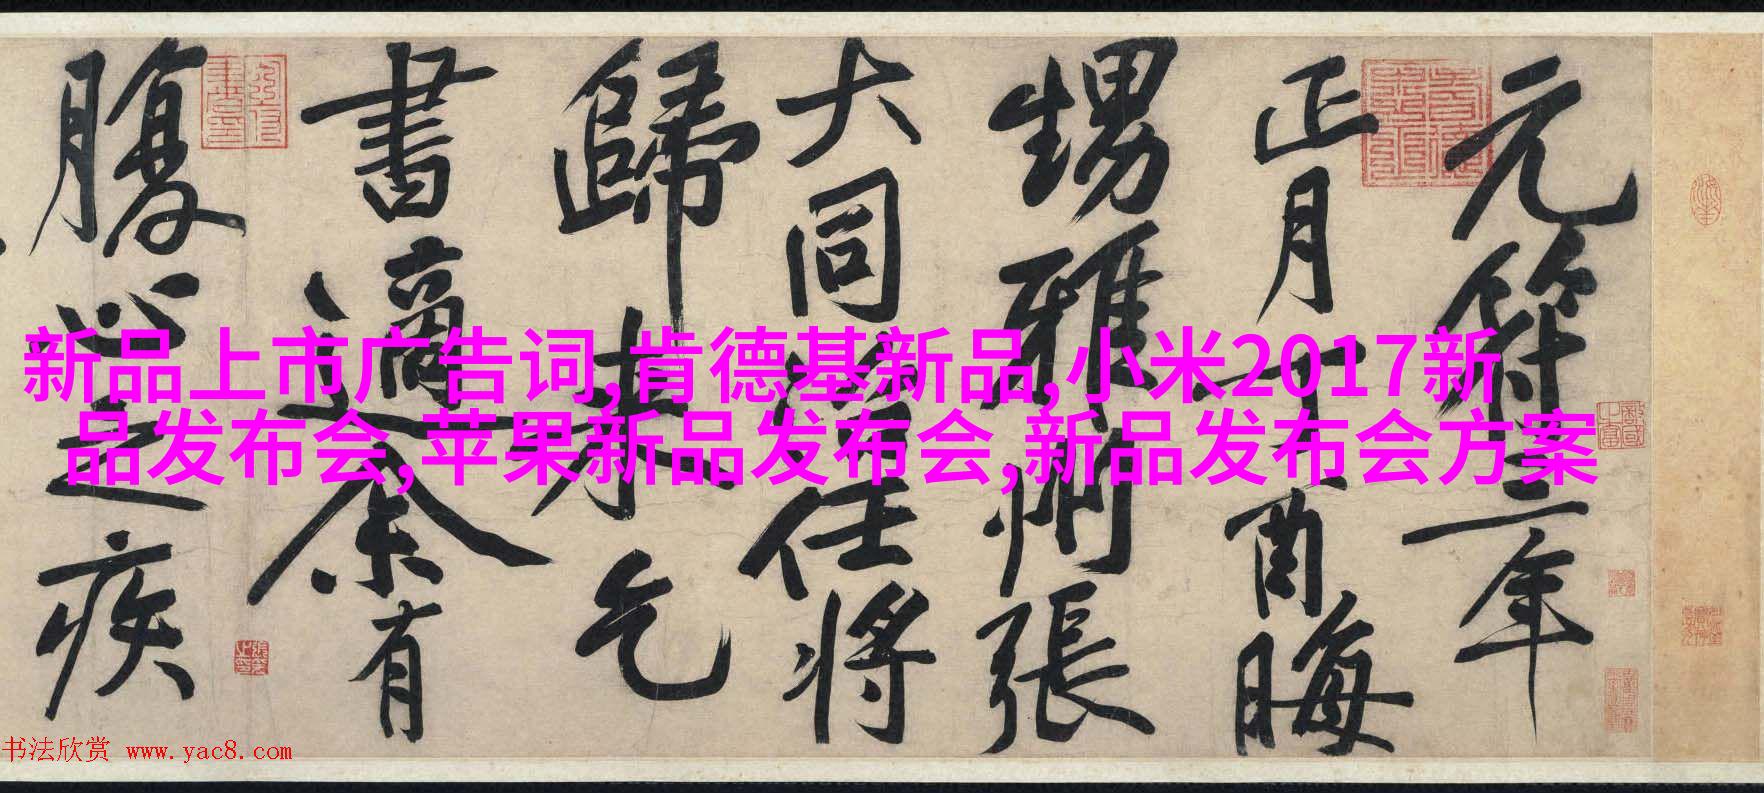 元符三年
正月丁酉晦
甥雅州張
大同治任將
歸來乞
書適余有
腹心之疾
新品上市广告词,肯德基新品,小米2017新
品发布会,苹果新品发布会,新品发布会方案
书法欣赏 www.yac8.com